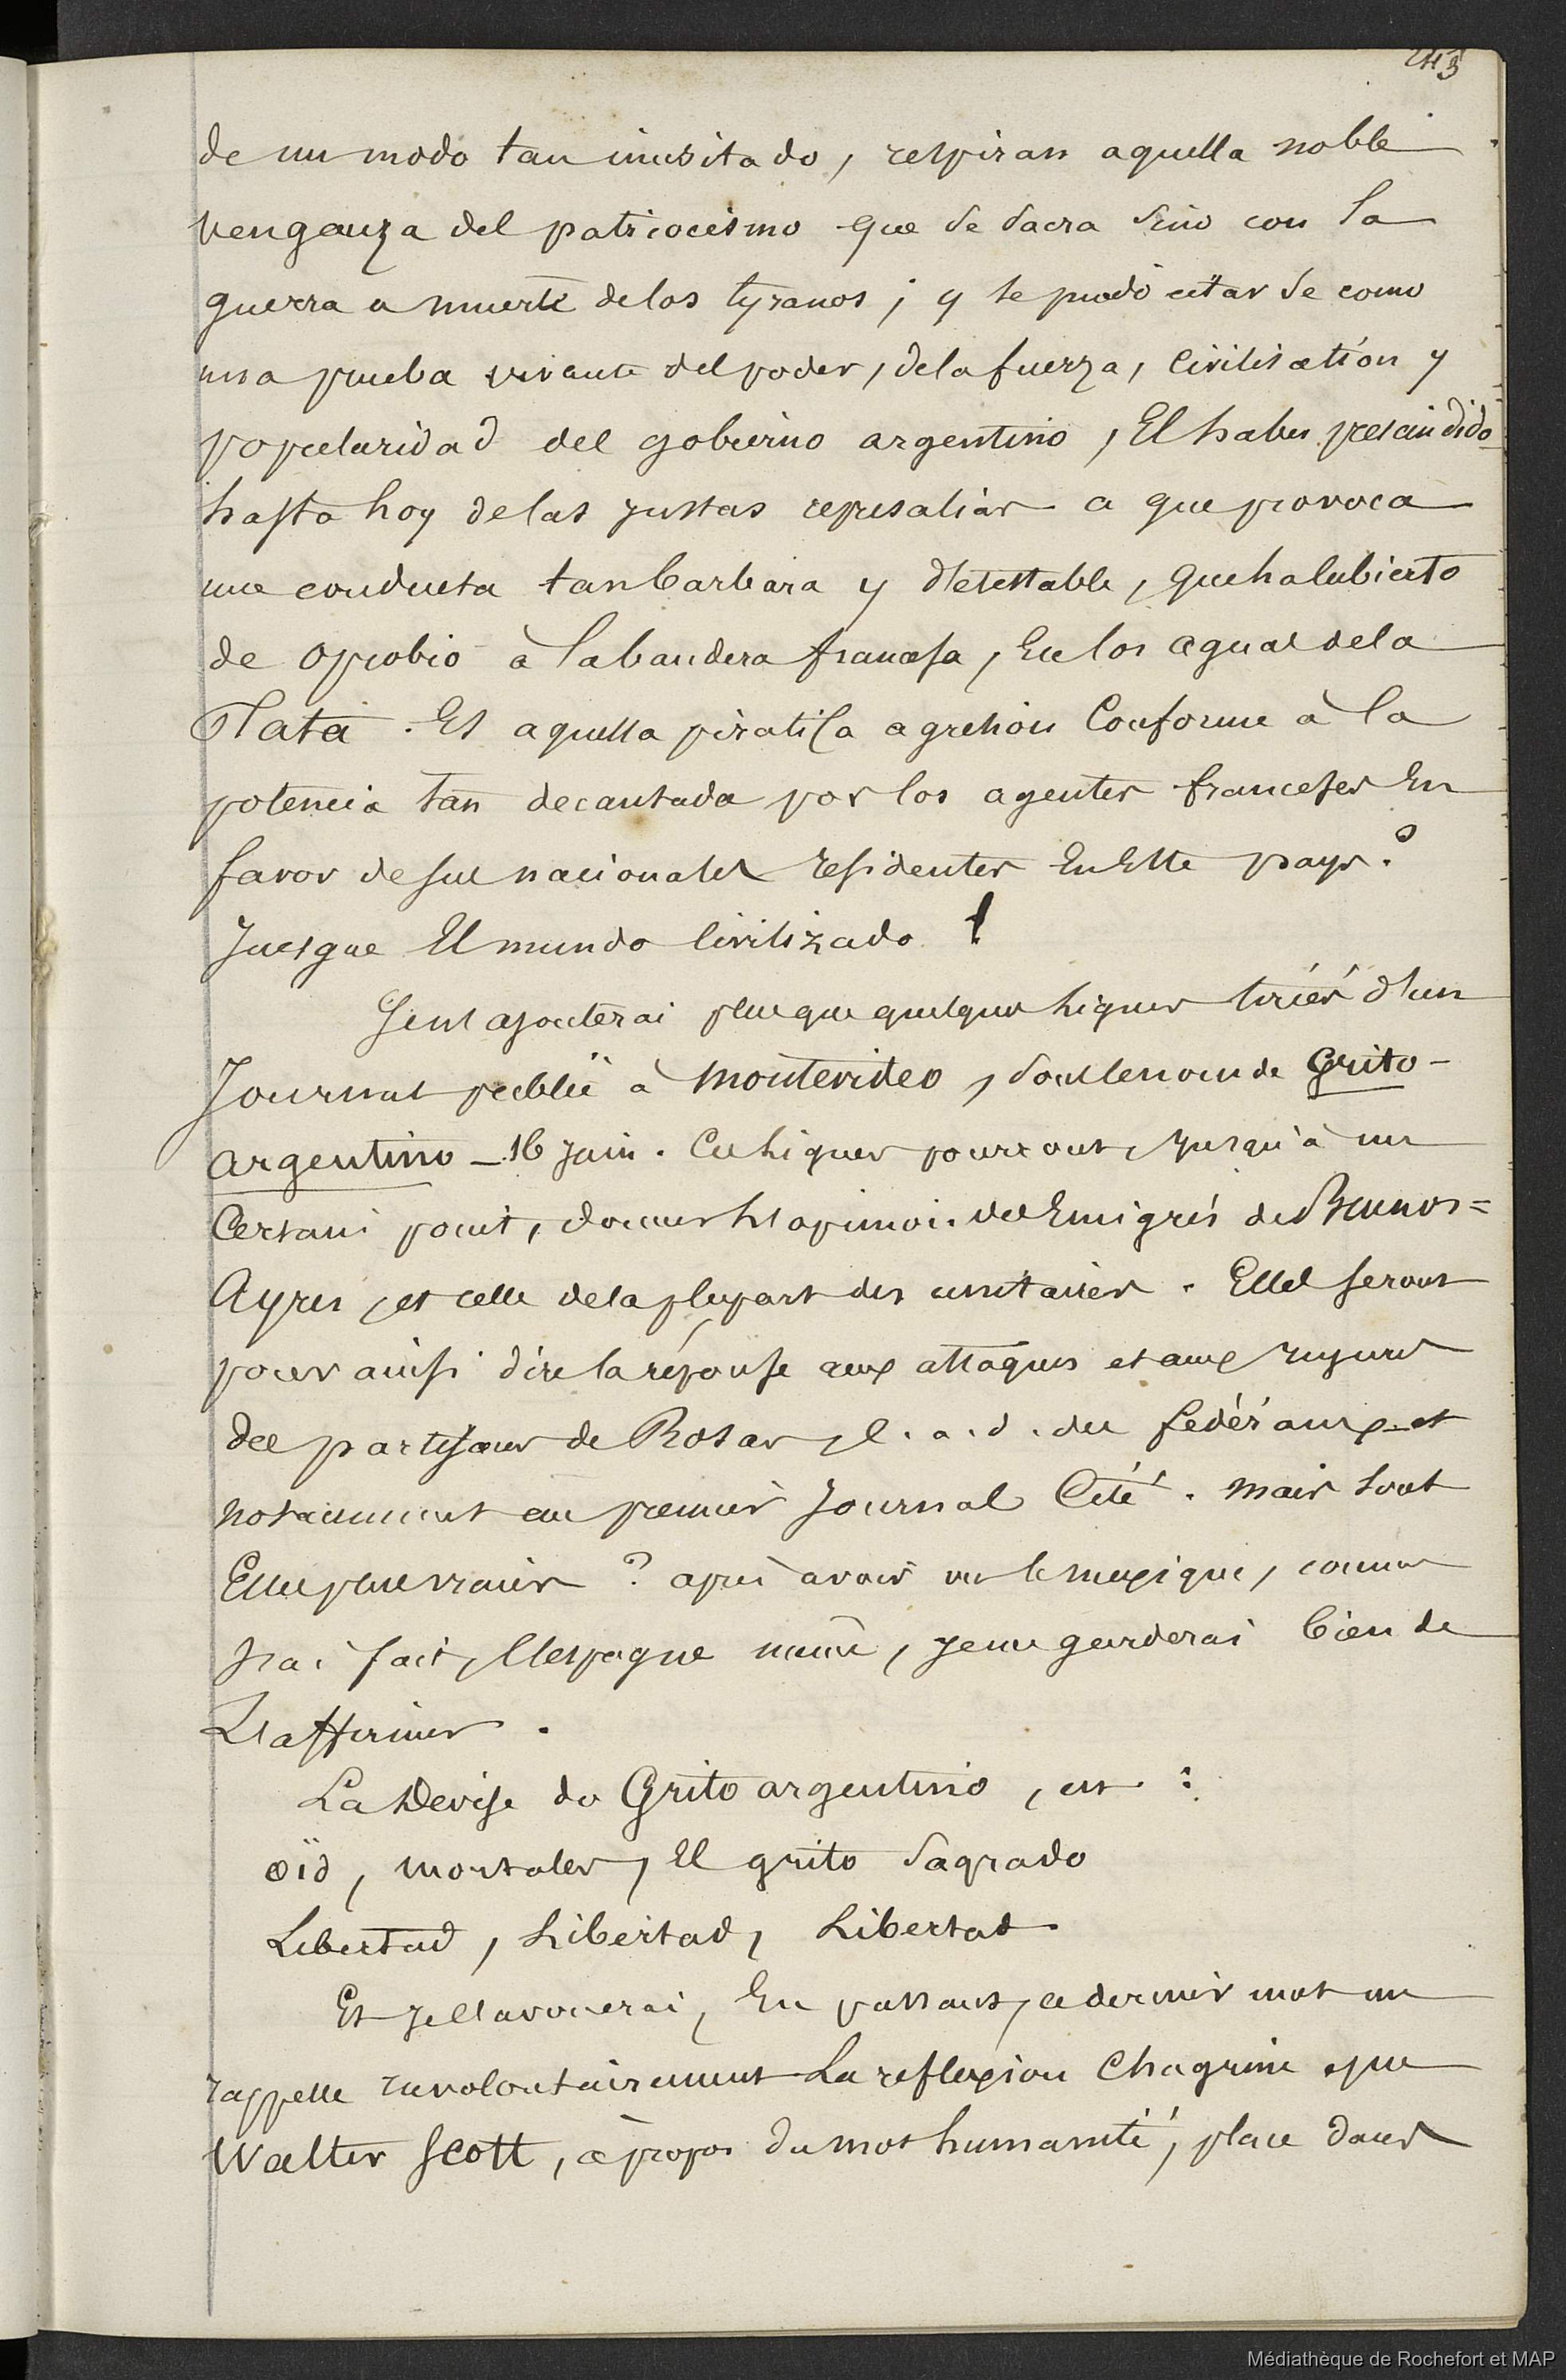 243
de un modo tan inusitado, respiran aquella noble
venganza del patriocismo que se sacra sino con la
guerra a muerte de los tyranos; y se puedo citar se como
una prueba vivante del poder, de la fuerza, civilisation y
popularidad del gobierno argentino, El haber prescindido
hasta hoy de las justas represalias a que provoca
una conducta tan barbara y detestable, que ha cubierto
de oprobio à la bandera francesa, En los aguas de la
Plata. Es aquella piratica agresion Conforme à la
potencia tan decantada por los agentes franceses En
favor de sus nacionales residentes En Este pays?
Jusgue El mundo civilizado !
Je n'ajouterai plus que quelques lignes tirées d'un
Journal publié à Montevideo, sous le nom de Grito-
argentino – 16 juin. Ces lignes pourront, jusqu'à un
Certain point, donner l'opinion des Emigrés de Buenos=
Ayres, et celle de la plupart des unitaires. Elles seront
pour ainsi dire la réponse aux attaques et aux injures
des partisans de Rosas, c. a. d. des fédéraux et
notamment au premier Journal Cité. mais sont
Elles plus vraies ? après avoir vu le mexique, comme
je l'ai fait, l'Espagne même, je me garderai bien de
L'affirmer.
La Devise du Grito argentino, est :
oïd, mortales, El grito sagrado
Libertad, Libertad, Libertad
Et je l'avouerai, En passant, ce dernier mot me
rappelle involontairement La reflexion Chagrine que
Walter Scott, à propos du mot humanité, place dans
Médiathèque de Rochefort et MAP